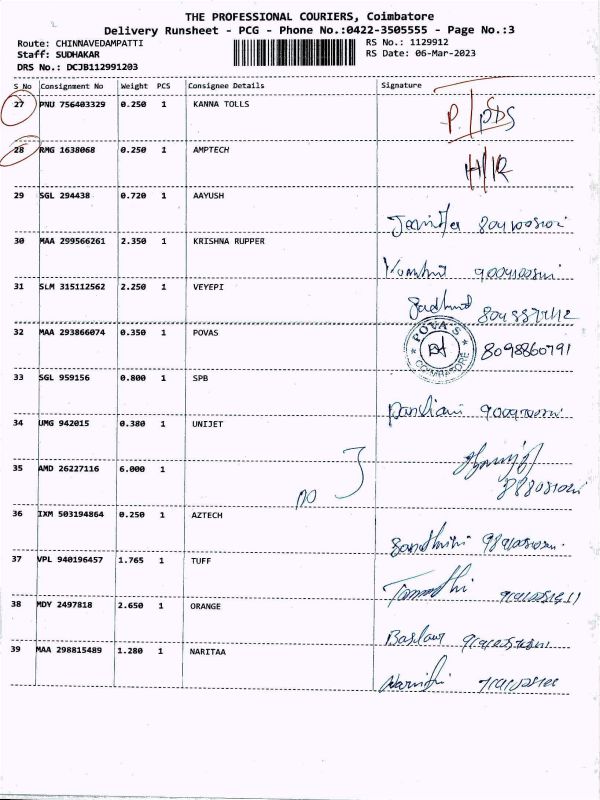 THE PROFESSIONAL COURIERS, Coimbatore
Delivery Runsheet - PCG - Phone No.:0422-3505555 - Page No.:3
Route: CHINNAVEDAMPATTI RS No.: 1129912
Staff: SUDHAKAR RS Date: 06-Mar-2023
DRS No.: DCJB112991203
S No Consignment No Weight PCS Consignee Details Signature
27 PNU 756403329 0.250 1 KANNA TOLLS
28 RMG 1638068 0.250 1 AMPTECH
29 SGL 294438 0.720 1 AAYUSH
30 MAA 299566261 2.350 1 KRISHNA RUPPER
31 SLM 315112562 2.250 1 VEYEPI
32 MAA 293866074 0.350 1 POVAS POVA'S COIMBATORE 8098860791
33 SGL 959156 0.800 1 SPB
34 UMG 942015 0.380 1 UNIJET
35 AMD 26227116 6.000 1
36 IXM 503194864 0.250 1 AZTECH
37 VPL 940196457 1.765 1 TUFF
38 MDY 2497818 2.650 1 ORANGE
39 MAA 298815489 1.280 1 NARITAA